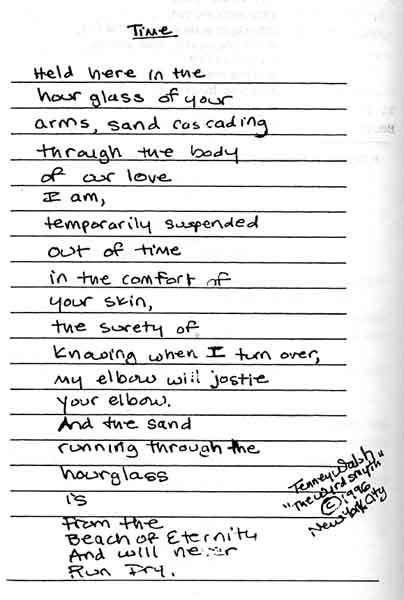 Time
Held here in the
hour glass of your
arms, sand cascading
through the body
of our love
I am,
temporarily suspended
out of time
in the comfort of
your skin,
the surety of
knowing when I turn over,
my elbow will jostle
your elbow.
And the sand
running through the
hourglass
is
from the
Beach of Eternity
And will never
Run Dry.
Tenney Walsh
"The Wyrdsmyth"
© 1996
New York City